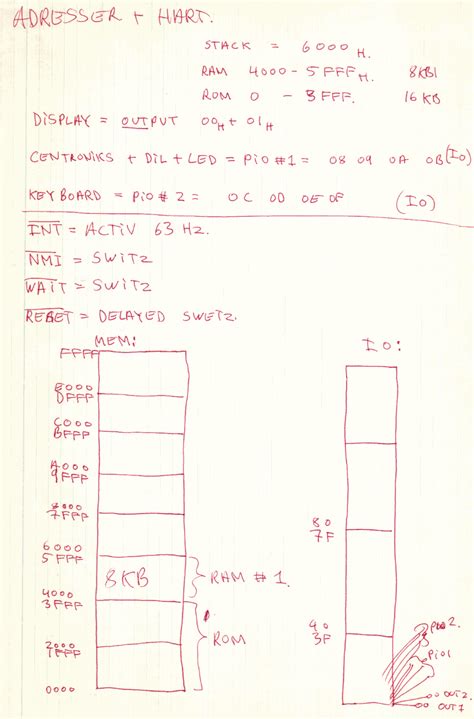 ADRESSER + HART.
STACK = 6000 H.
RAM 4000 - 5FFF H. 8KB1
ROM 0 - 3FFF. 16 KB
DISPLAY = OUTPUT 00H + 01H
CENTRONIKS + DIL + LED = PIO #1 = 08 09 0A 0B (IO)
KEYBOARD = PIO # 2 = 0C 0D 0E 0F (IO)
INT = ACTIV 63 HZ.
NMI = SWITZ
WAIT = SWITZ
RESET = DELAYED SWETZ.
MEM: IO:
FFFF
E000
DFFF
C000
BFFF
A000
9FFF
8000
7FFF
80
7F
6000
5FFF
8KB RAM # 1.
4000
3FFF
40
3F
PIO 2.
ROM
PIO1
2000
1FFF
0000
OUT2.
OUT1